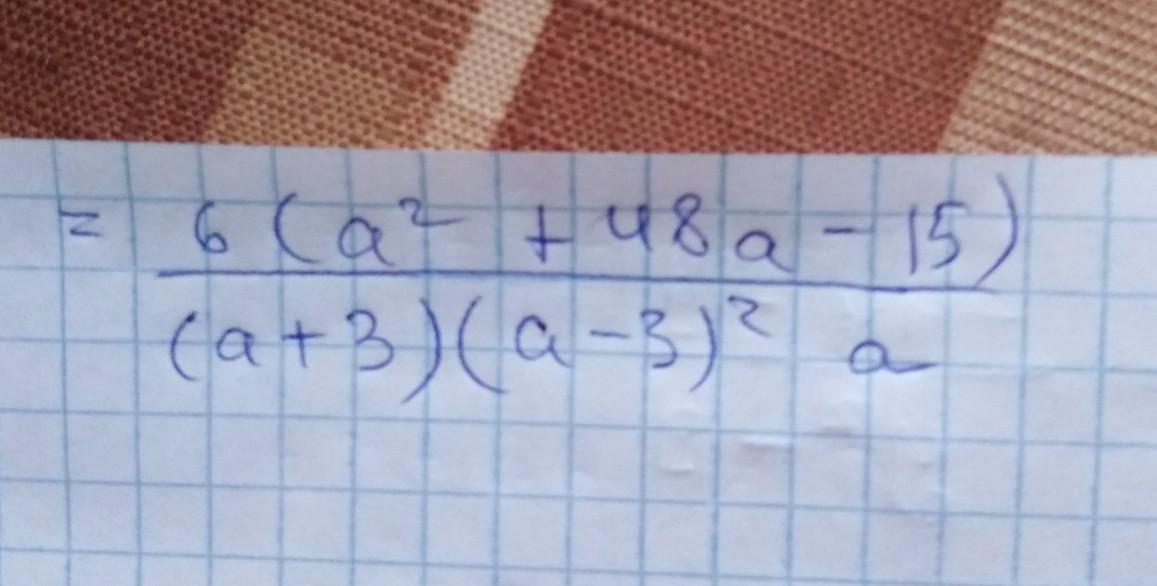 = 6 ( a² + 48a - 15)
(a + 3)(a - 3)² a